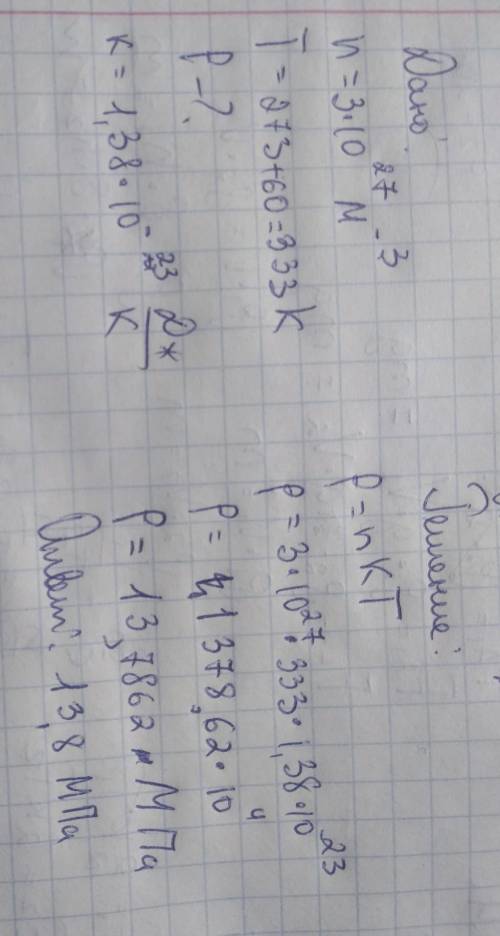 Дано:
n = 3·10²⁷ м⁻³
T = 273+60 = 333 K
P - ?
к = 1,38·10⁻²³ Дж/К
Решение:
P = nKT
P = 3·10²⁷·333·1,38·10²³
P = 1378,62·10⁴
P = 13,7862 МПа
Ответ: 13,8 МПа